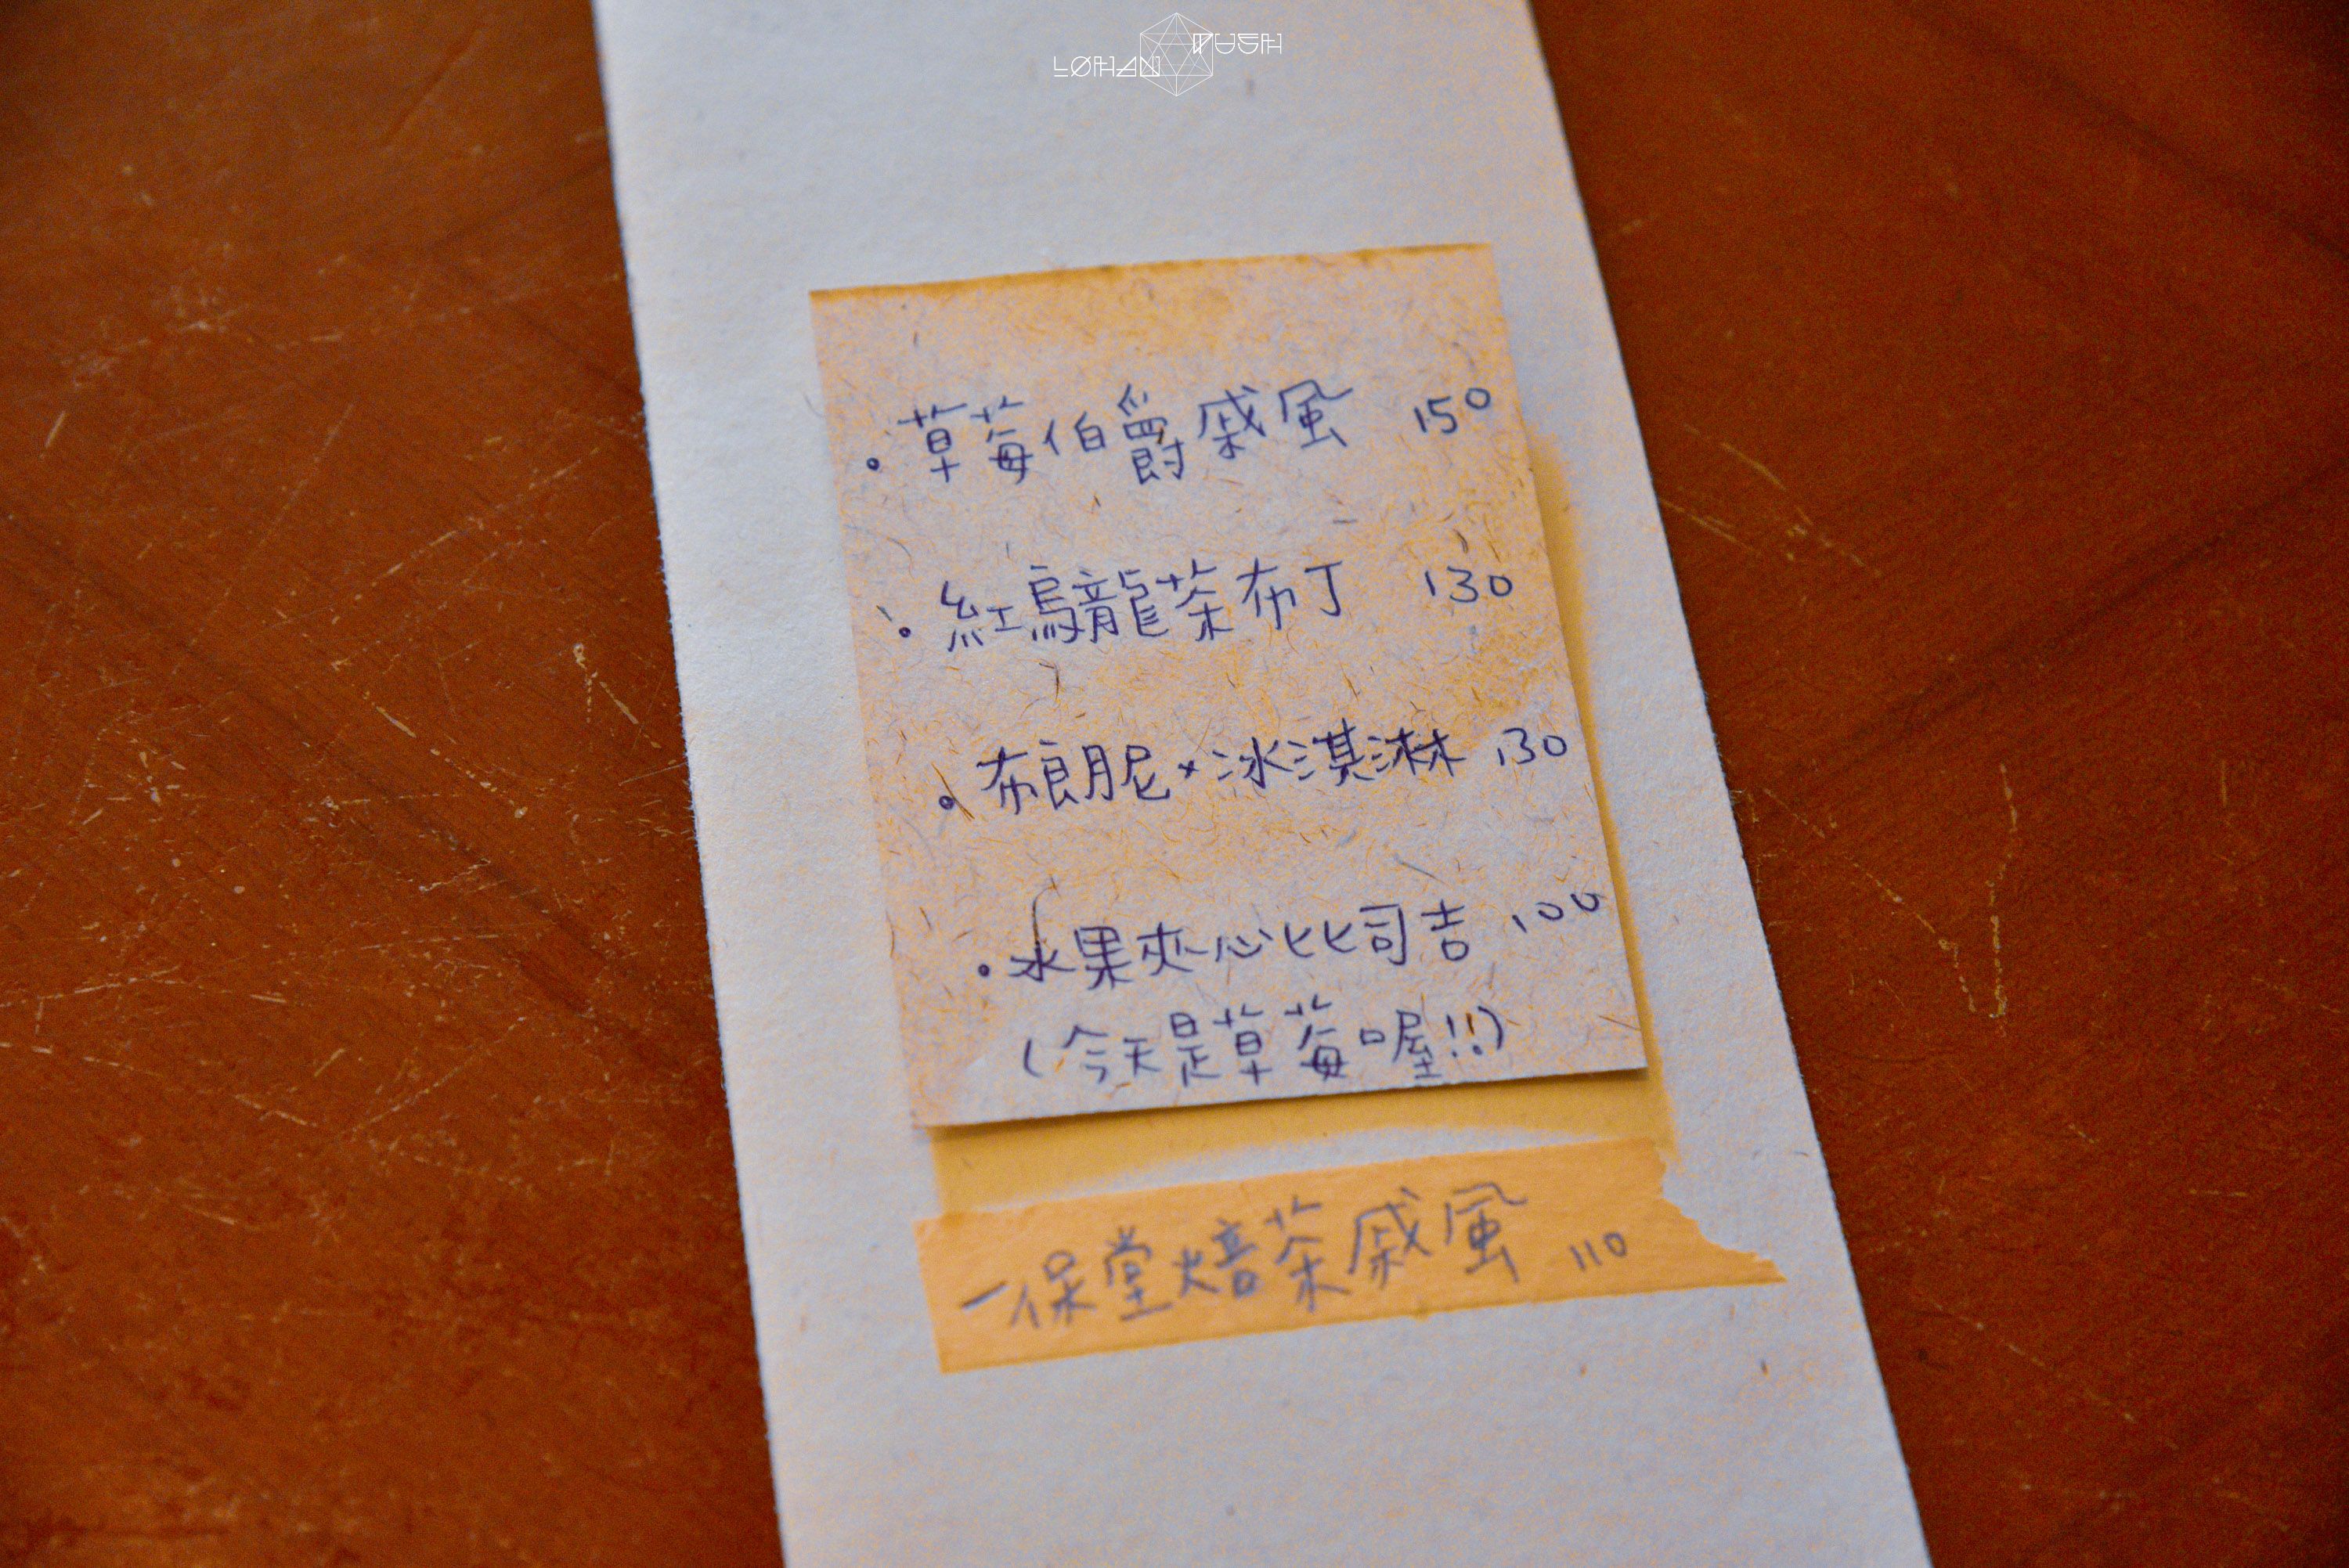 LOHAN MUSH
• 草莓伯爵戚風 150
• 紅烏龍茶布丁 130
• 布朗尼×冰淇淋 130
• 水果夾心比司吉 100
(今天是草莓喔!!)
一保堂焙茶戚風 110